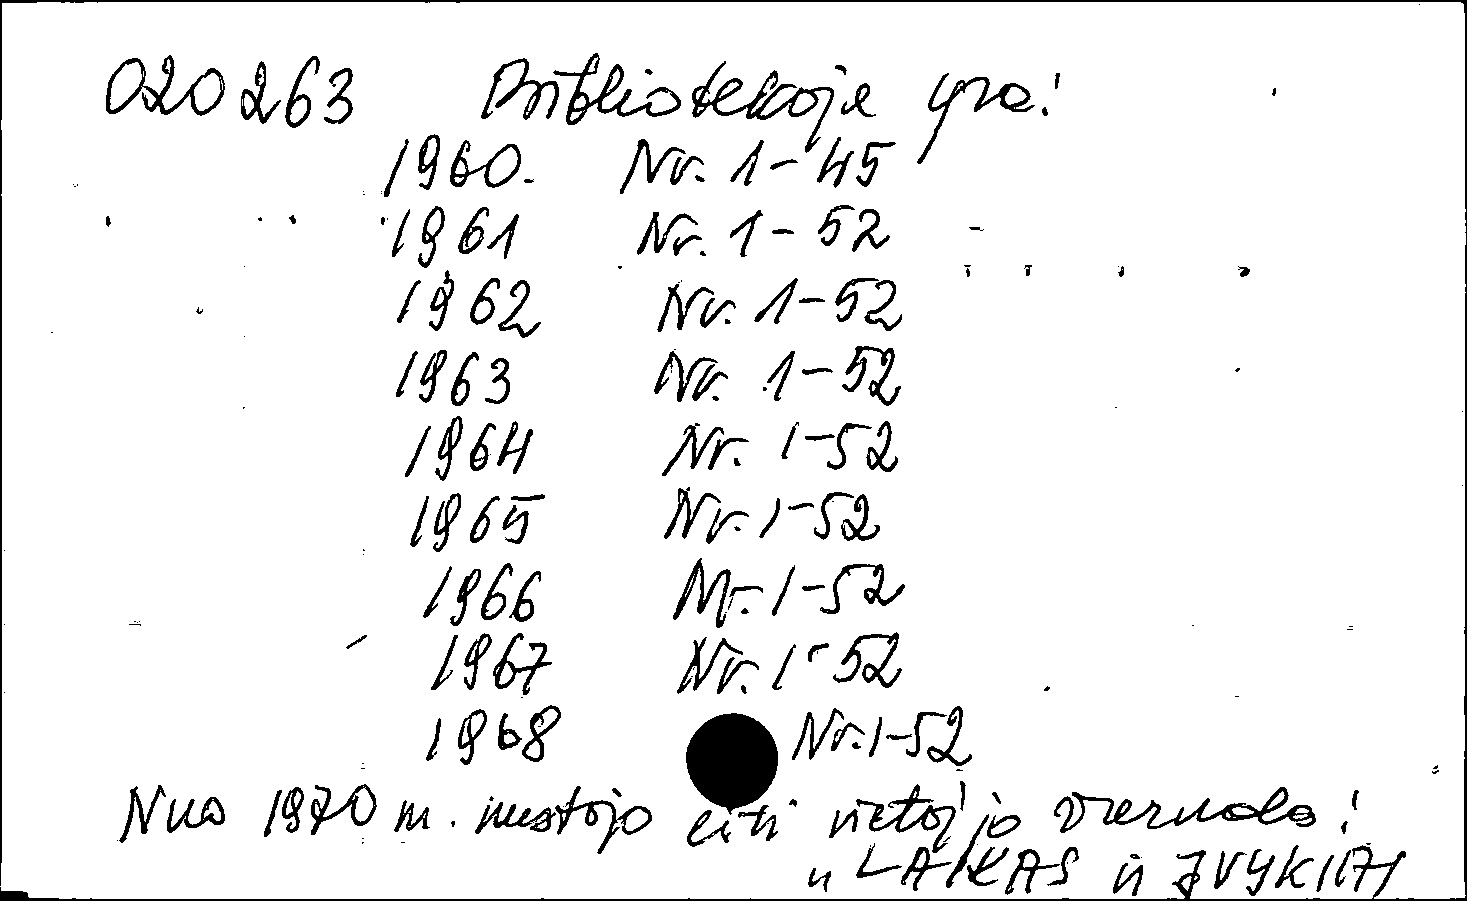 020263 Bibliotekoje yra:
1960. Nr. 1-45
1961 Nr. 1-52
1962 Nr. 1-52
1963 Nr. 1-52
1964 Nr. 1-52
1965 Nr. 1-52
1966 Nr. 1-52
1967 Nr. 1-52
1968 Nr. 1-52
Nuo 1970 m. nustojo eiti vietoj jo
„LAIKAS ir ĮVYKIAI